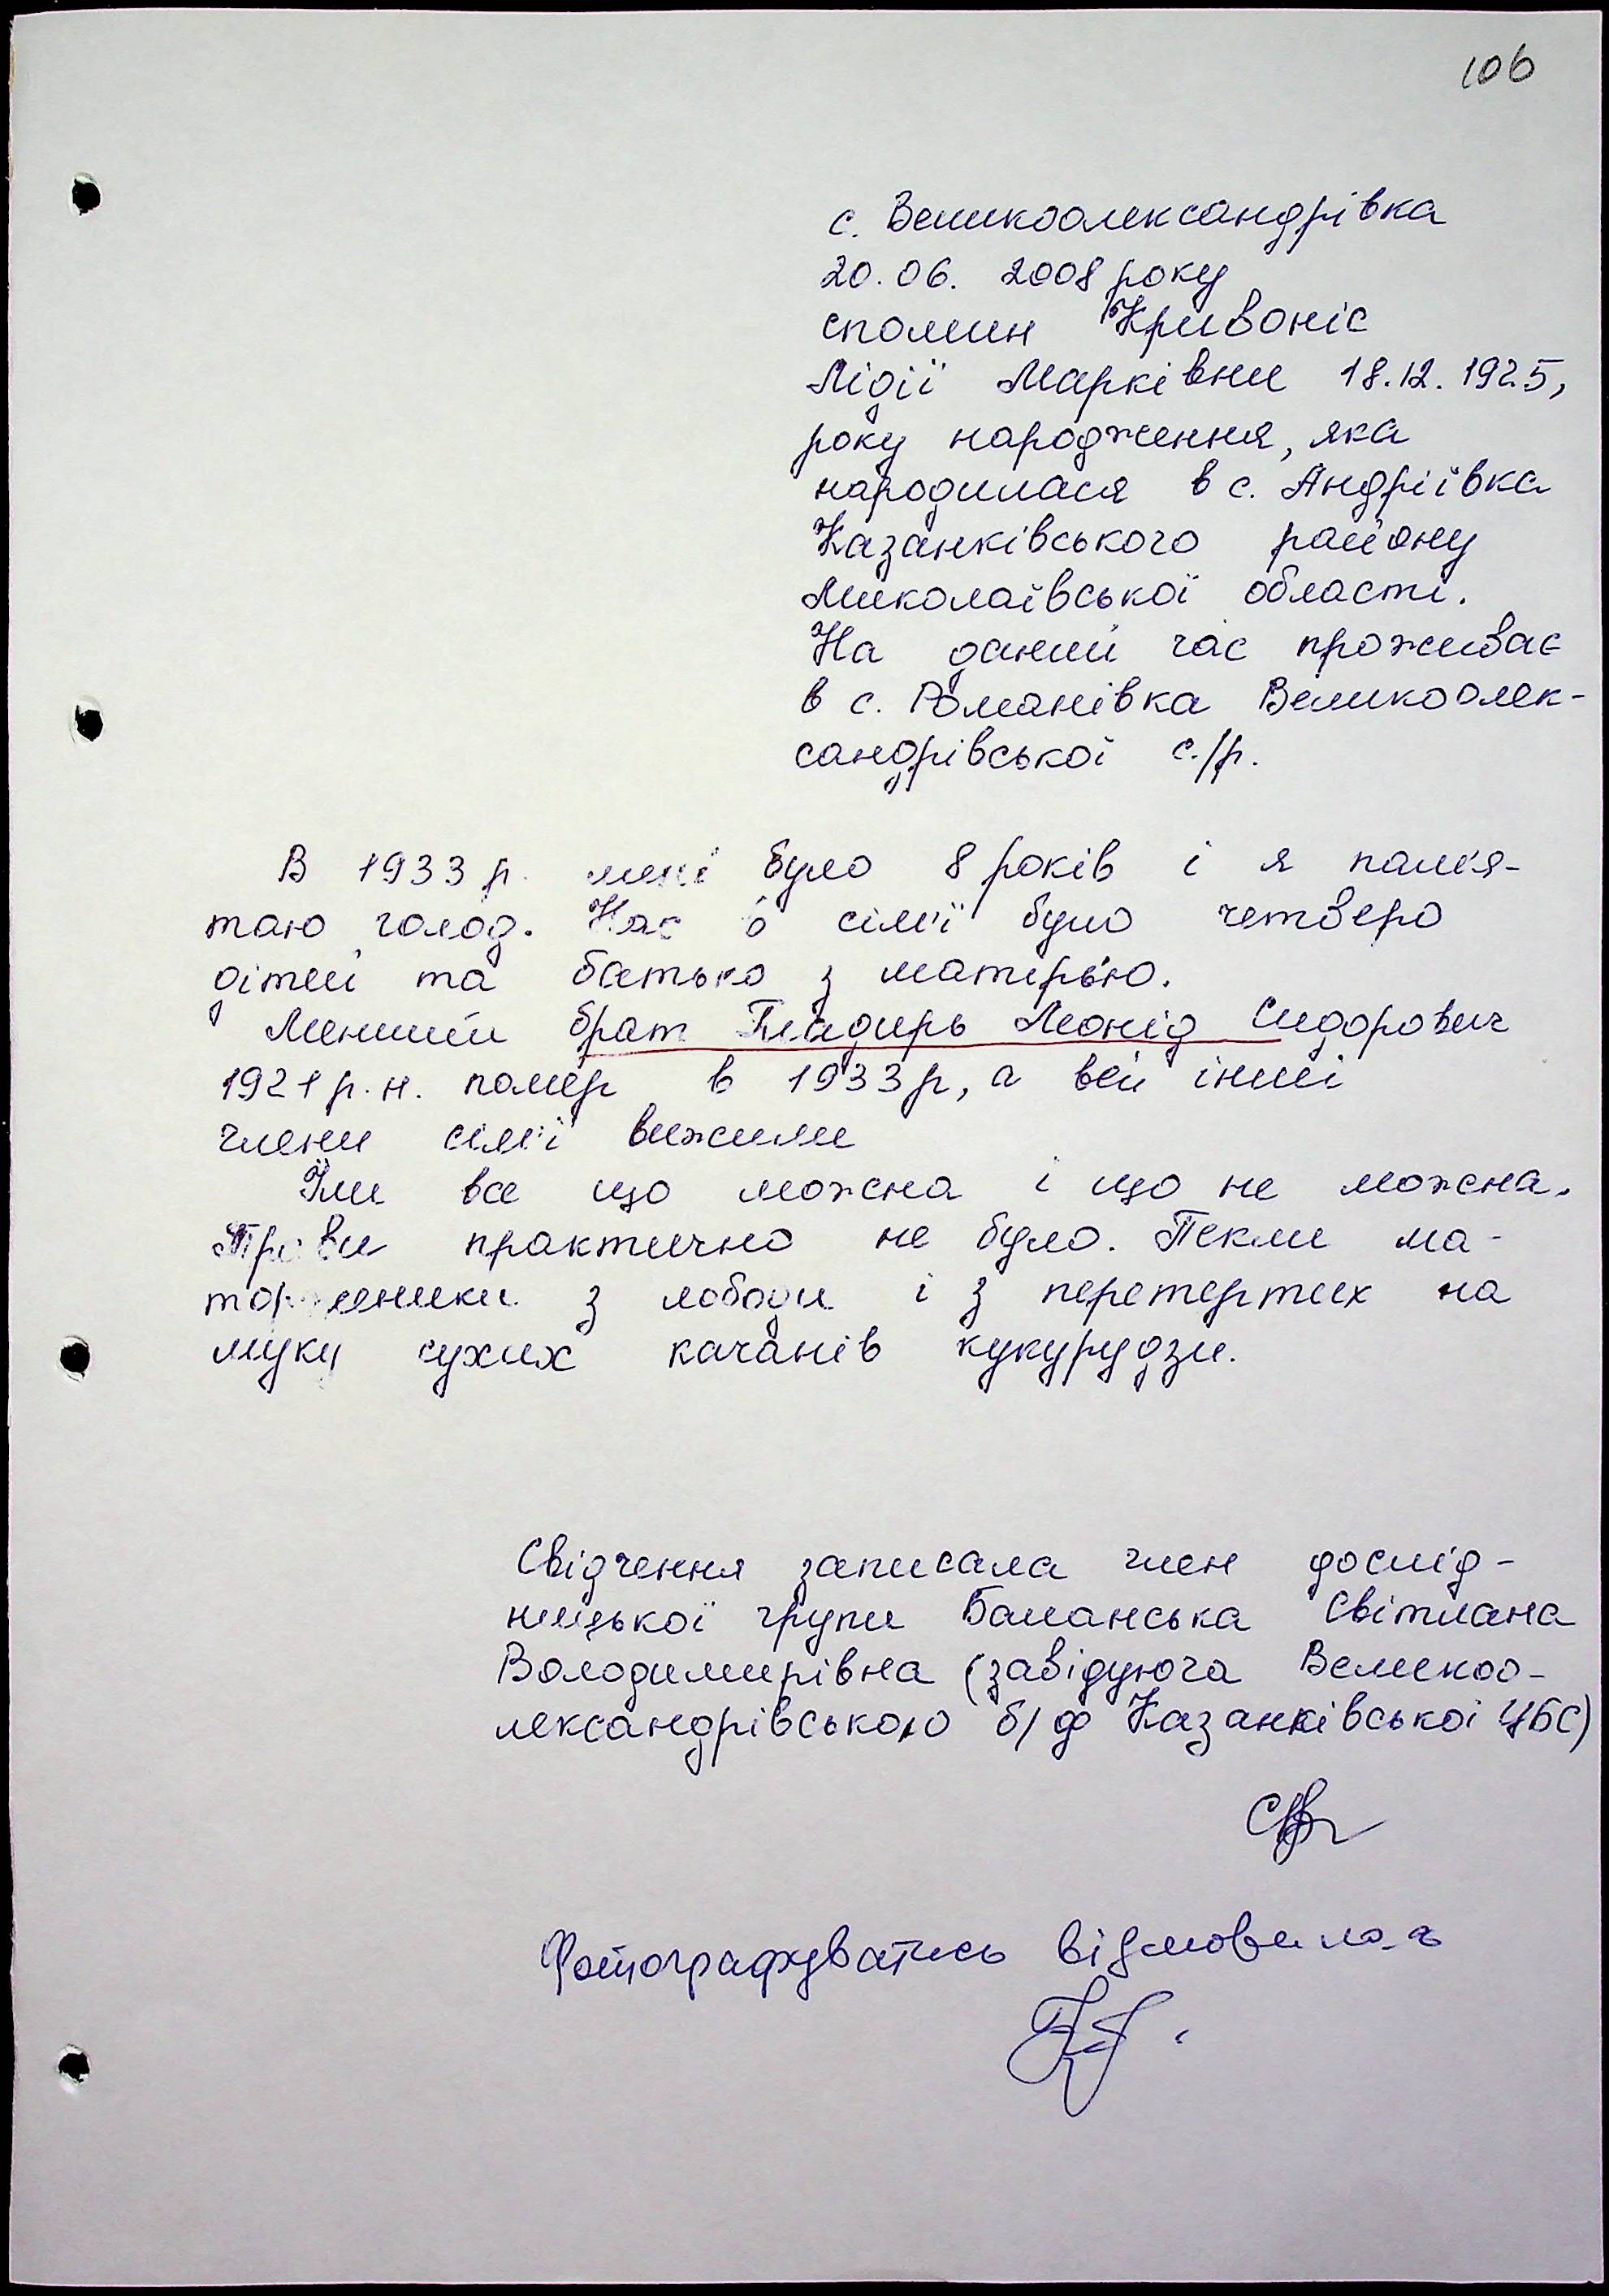 106
с. Великоолександрівка
20.06. 2008 року
спомин Кривоніс
Лідії Марківни 18.12.1925,
року народження, яка
народилася в с. Андріївка
Казанківського району
Миколаївської області.
На даний час проживає
в с. Романівка Великоолек-
сандрівської с./р.
В 1933 р. мені було 8 років і я пам'я-
таю голод. Нас в сім'ї було четверо
дітей та батько з матер'ю.
Менший брат Леонід Сидорович
1921 р.н. помер в 1933 р, а всі інші
члени сім'ї вижили
Їли все що можна і що не можна.
Трави практично не було. Пекли ма-
торженики з лободи і з перетертих на
муку сухих качанів кукурудзи.
Свідчення записала член дослід-
ницької групи Баманська Світлана
Володимирівна (завідуюча Великоо-
лександрівською б/ф Казанківської ЦБС)
Фотографуватись відмовилась